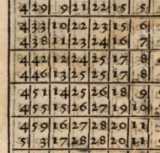 4 29 9 21 22 15 5
4 33 10 22 23 15 6
4 38 11 23 24 16 7
4 42 12 24 25 17 8
4 46 13 25 25 17 8
4 51 14 25 26 18 9
4 55 15 26 27 19 10
4 59 16 27 28 20 11
5 3 17 28 28 20 11